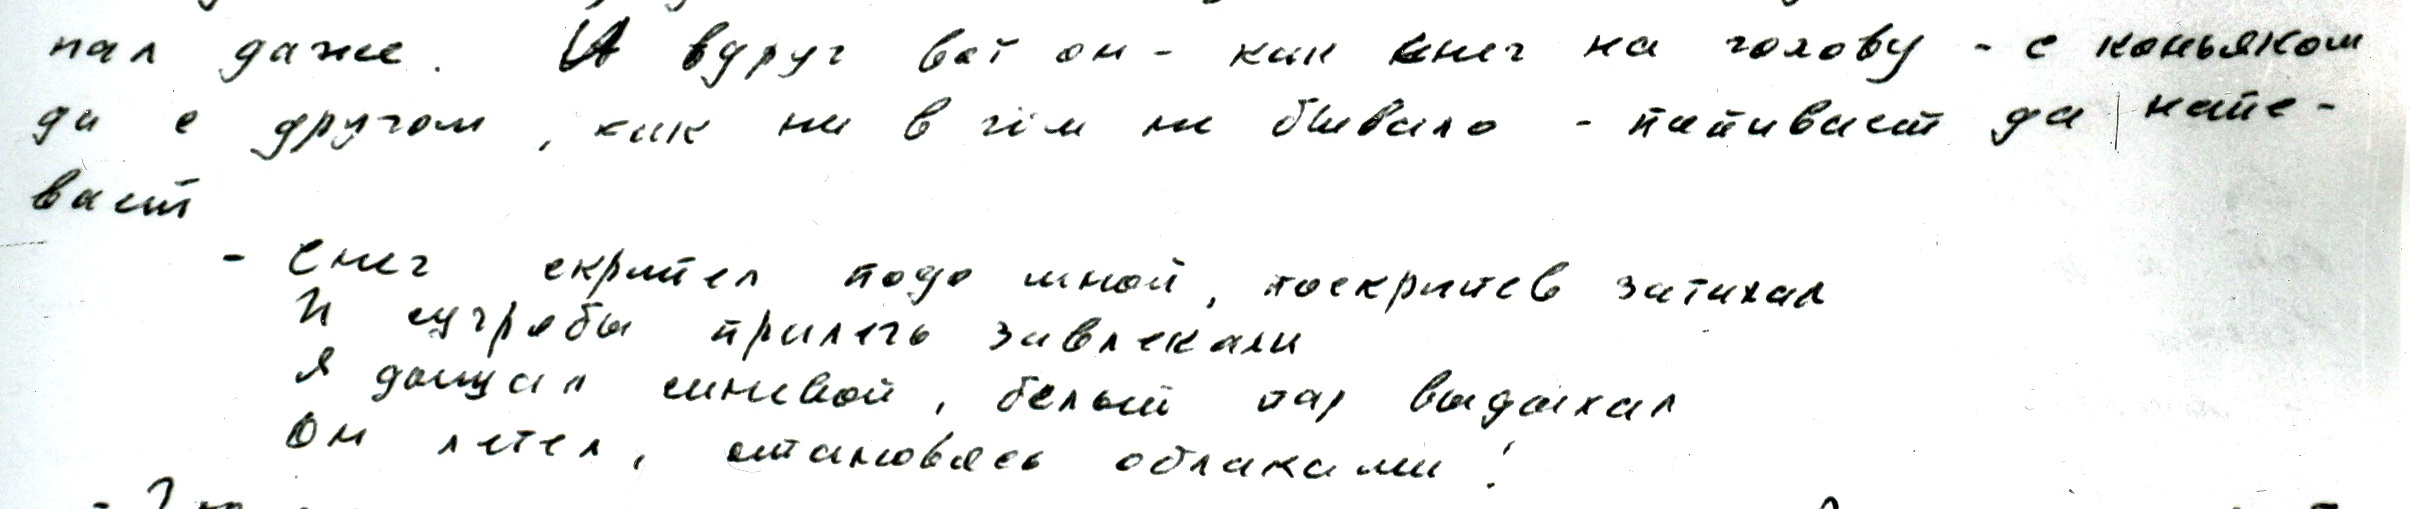 пал даже. И вдруг вот он - как снег на голову - с коньяком
да с другом, как ни в чём не бывало - попивает да напе-
вает
- Снег скрипел подо мной, поскрипев затихал
И сугробы прилечь завлекали
Я дышал синевой, белый пар выдыхал
Он летел, становясь облаками!